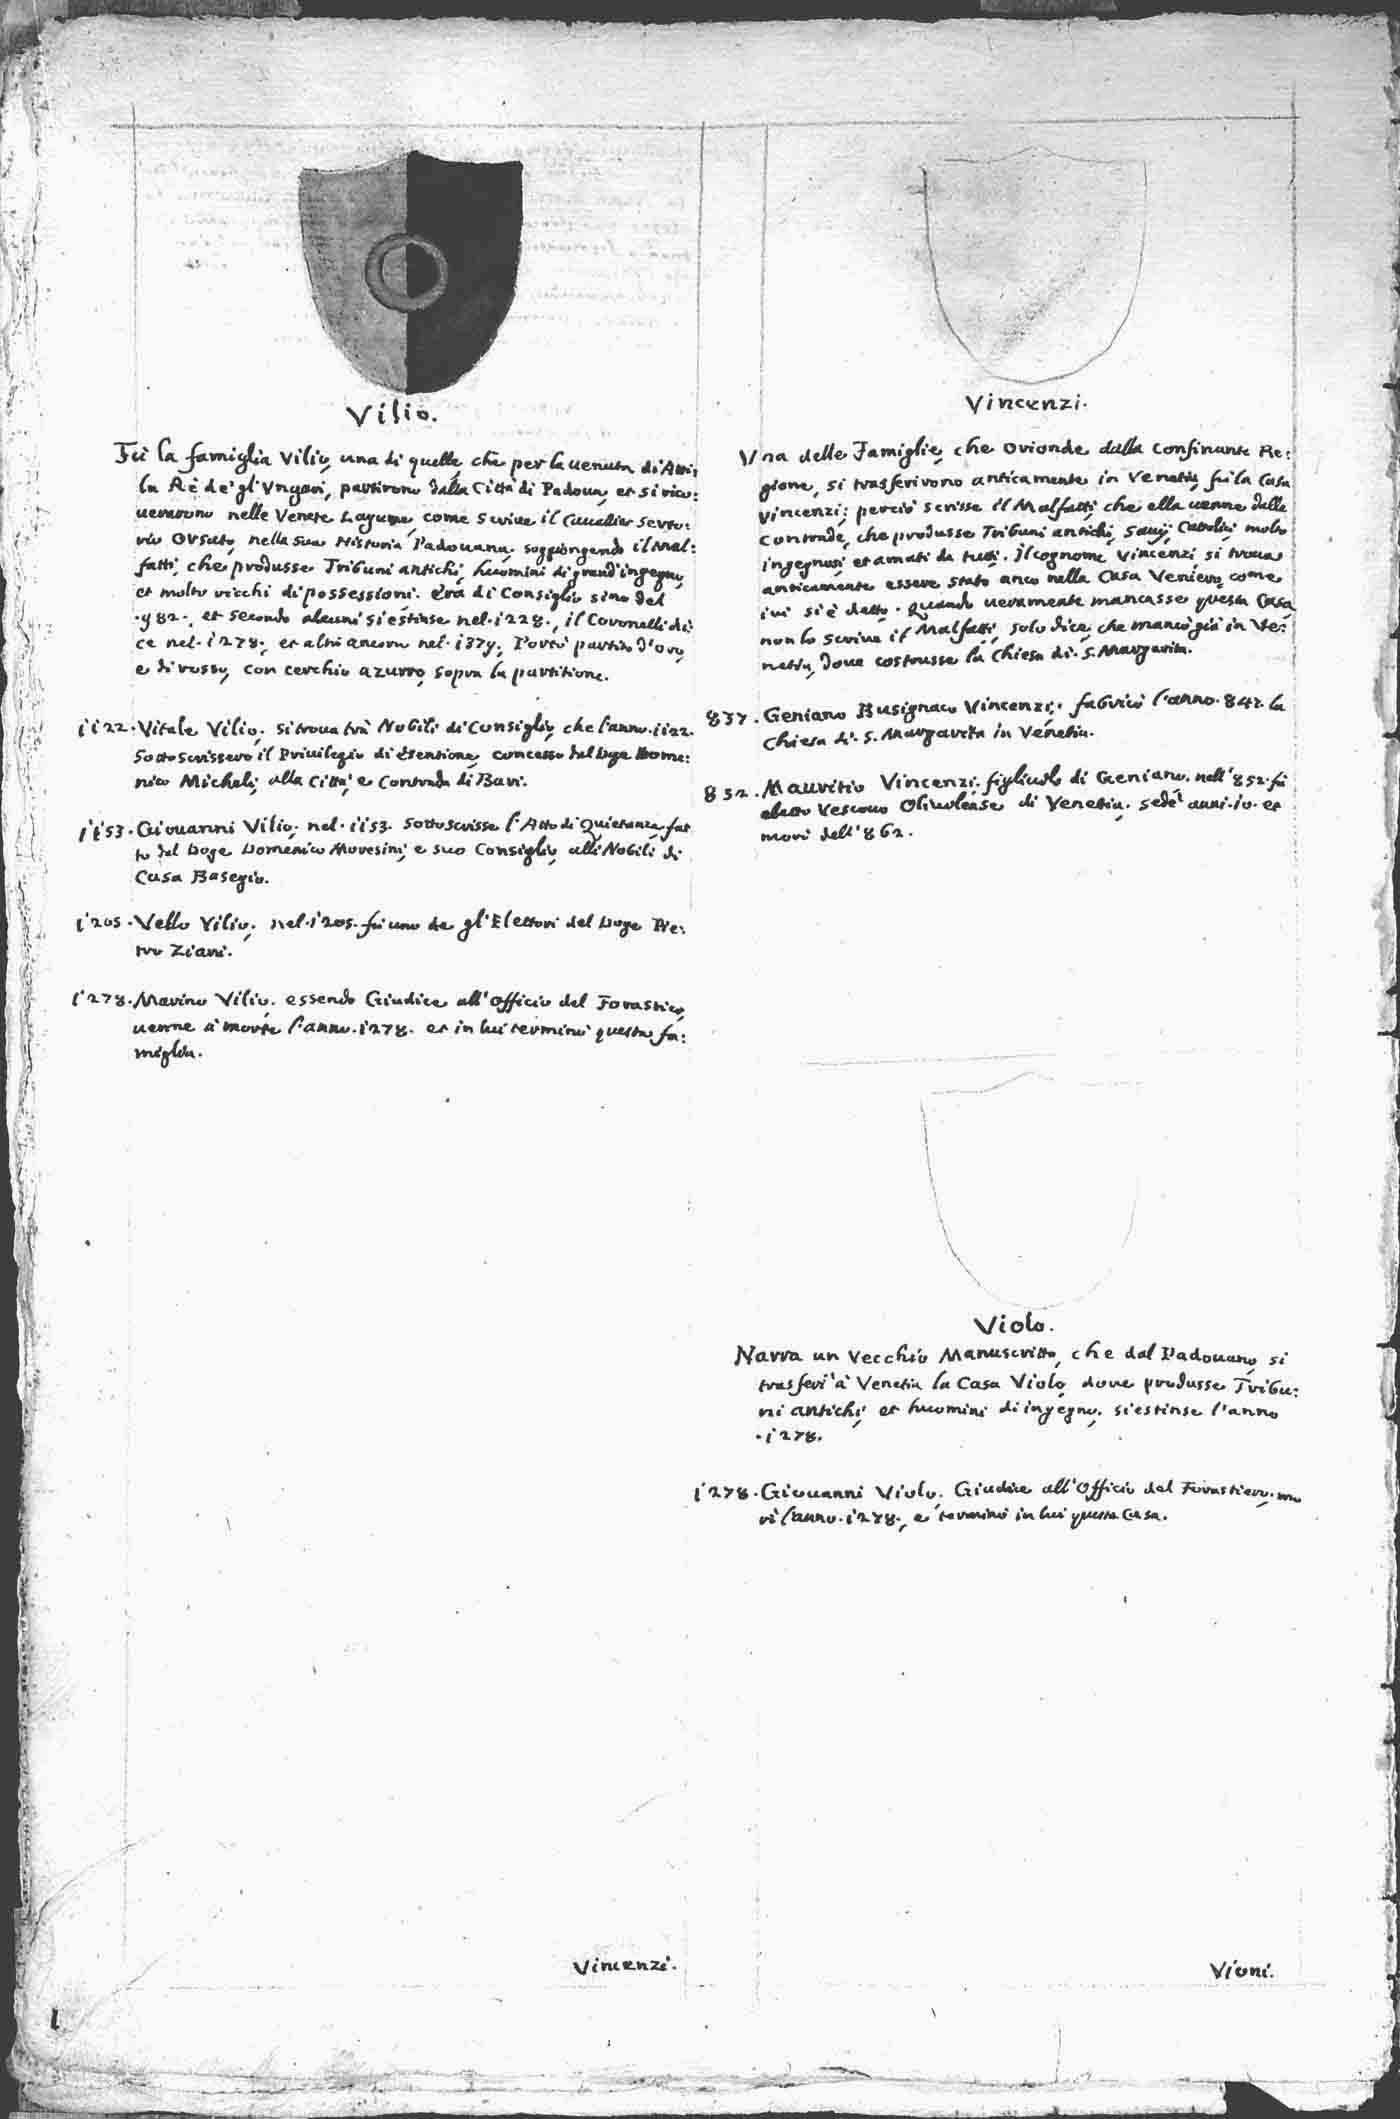 Vilio.
Fù la famiglia Vilio, una di quelle, che per la uenuta di Atti:
la Rè de gl'Vngari, partirono dalla Città di Padoua, et si rico:
uerarono nelle Venete Lagune, come scriue il Caualier Serto:
rio Orsato, nella sua Historia Padouana, soggiongendo il Mal:
fatti, che produsse Tribuni antichi, huomini di grand'ingegno,
et molto ricchi di possessioni. Era di Consiglio sino del
.982., et secondo alcuni si éstinse nel.1228., il Coronelli di:
ce nel.1278., et altri ancora nel.1379. Portò partito d'oro,
e di rosso, con cerchio azurro, sopra la partitione.
1122. Vitale Vilio, si troua trà Nobili di Consiglio, che l'anno.1122.
Sottoscrissero il Priuilegio di ésentione, concesso dal Doge Dome:
nico Micheli, alla Città, e Contrada di Bari.
1153. Giouanni Vilio, nel.1153. sottoscrisse l'Atto di Quietanza, fat
to dal Doge Domenico Moresini, e suo Consiglio, alli Nobili di
Casa Basegio.
1205. Vello Vilio, nel.1205. fù uno de gl'Elettori del Doge Pie:
tro Ziani.
1278. Marino Vilio, essendo Giudice all'Officio del Forastier,
uenne à morte l'anno.1278. et in lui terminò questa fa:
miglia.
Vincenzi.
Vincenzi.
Vna delle Famiglie, che Orionde dalla Confinante Re:
gione, si trasferirono anticamente in Venetia, fù la Casa
Vincenzi; perciò scrisse il Malfatti, che ella uenne dalle
Contrade, che produsse Tribuni antichi, Sauij, Catolici, molto
ingegnosi, et amati da tutti. Il cognome Vincenzi si troua
anticamente essere stato anco nella Casa Veniero, come
iui si è detto. Quando ueramente mancasse questa Casa,
non lo scriue il Malfatti, solo dice, che mancò già in Ve:
netia, doue costrusse la Chiesa di.S.Margarita.
837. Geniano Busignaco Vincenzi, fabricò l'anno.842. la
Chiesa di.S.Margarita in Venétia.
852. Mauritio Vincenzi, figliuolo di Geniano, nell'852. fù
eletto Vescouo Oliuolense di Venetia, sedè anni.10. et
morì dell'862.
Violo.
Narra un Vecchio Manuscritto, che dal Padouano, si
trasferì à Venetia la Casa Violo, doue produsse Tribu:
ni antichi, et huomini di ingegno, si estinse l'anno
.1278.
1278. Giouanni Violo, Giudice all'Officio del Forastiero, mo
rì l'anno.1278., e terminò in lui questa Casa.
Vioni.